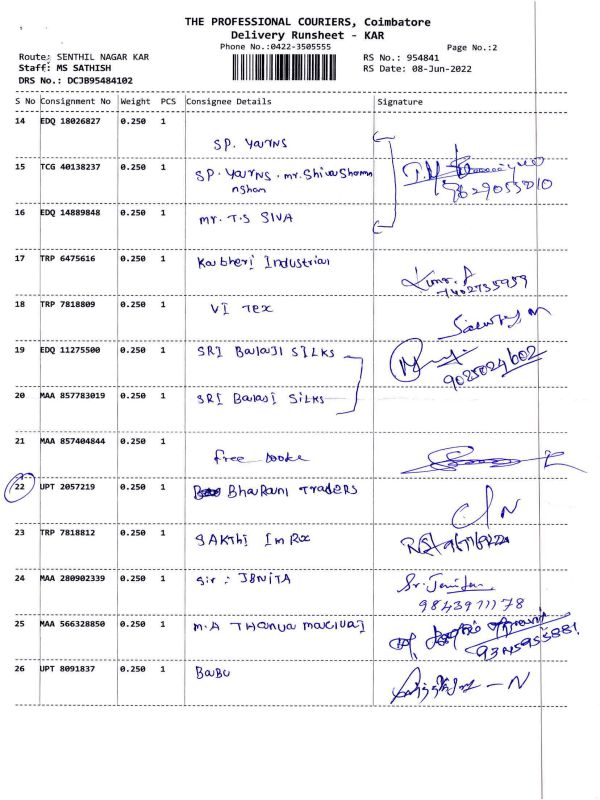 THE PROFESSIONAL COURIERS, Coimbatore
Delivery Runsheet - KAR
Phone No.:0422-3505555
Page No.:2
Route: SENTHIL NAGAR KAR
RS No.: 954841
Staff: MS SATHISH
RS Date: 08-Jun-2022
DRS No.: DCJB95484102
S No Consignment No Weight PCS Consignee Details Signature
14 EDQ 18026827 0.250 1
SP. Yarns
15 TCG 40138237 0.250 1 SP. Yarns. mr. Shiva
16 EDQ 14889848 0.250 1 mr. T.S SIVA
17 TRP 6475616 0.250 1 Kabheri Industrial
7402735959
18 TRP 7818809 0.250 1 VI Tex
19 EDQ 11275500 0.250 1 SRI Balaji SILKS
9025024602
20 MAA 857783019 0.250 1 SRI Balaji SILKS
21 MAA 857404844 0.250 1
free
22 UPT 2057219 0.250 1 Bharani Traders
C/N
23 TRP 7818812 0.250 1 SAKTHI
24 MAA 280902339 0.250 1 Sir: JENITA
Sr. Jenita
9843971178
25 MAA 566328850 0.250 1 M.A Thanya
9345955881
26 UPT 8091837 0.250 1 Babu